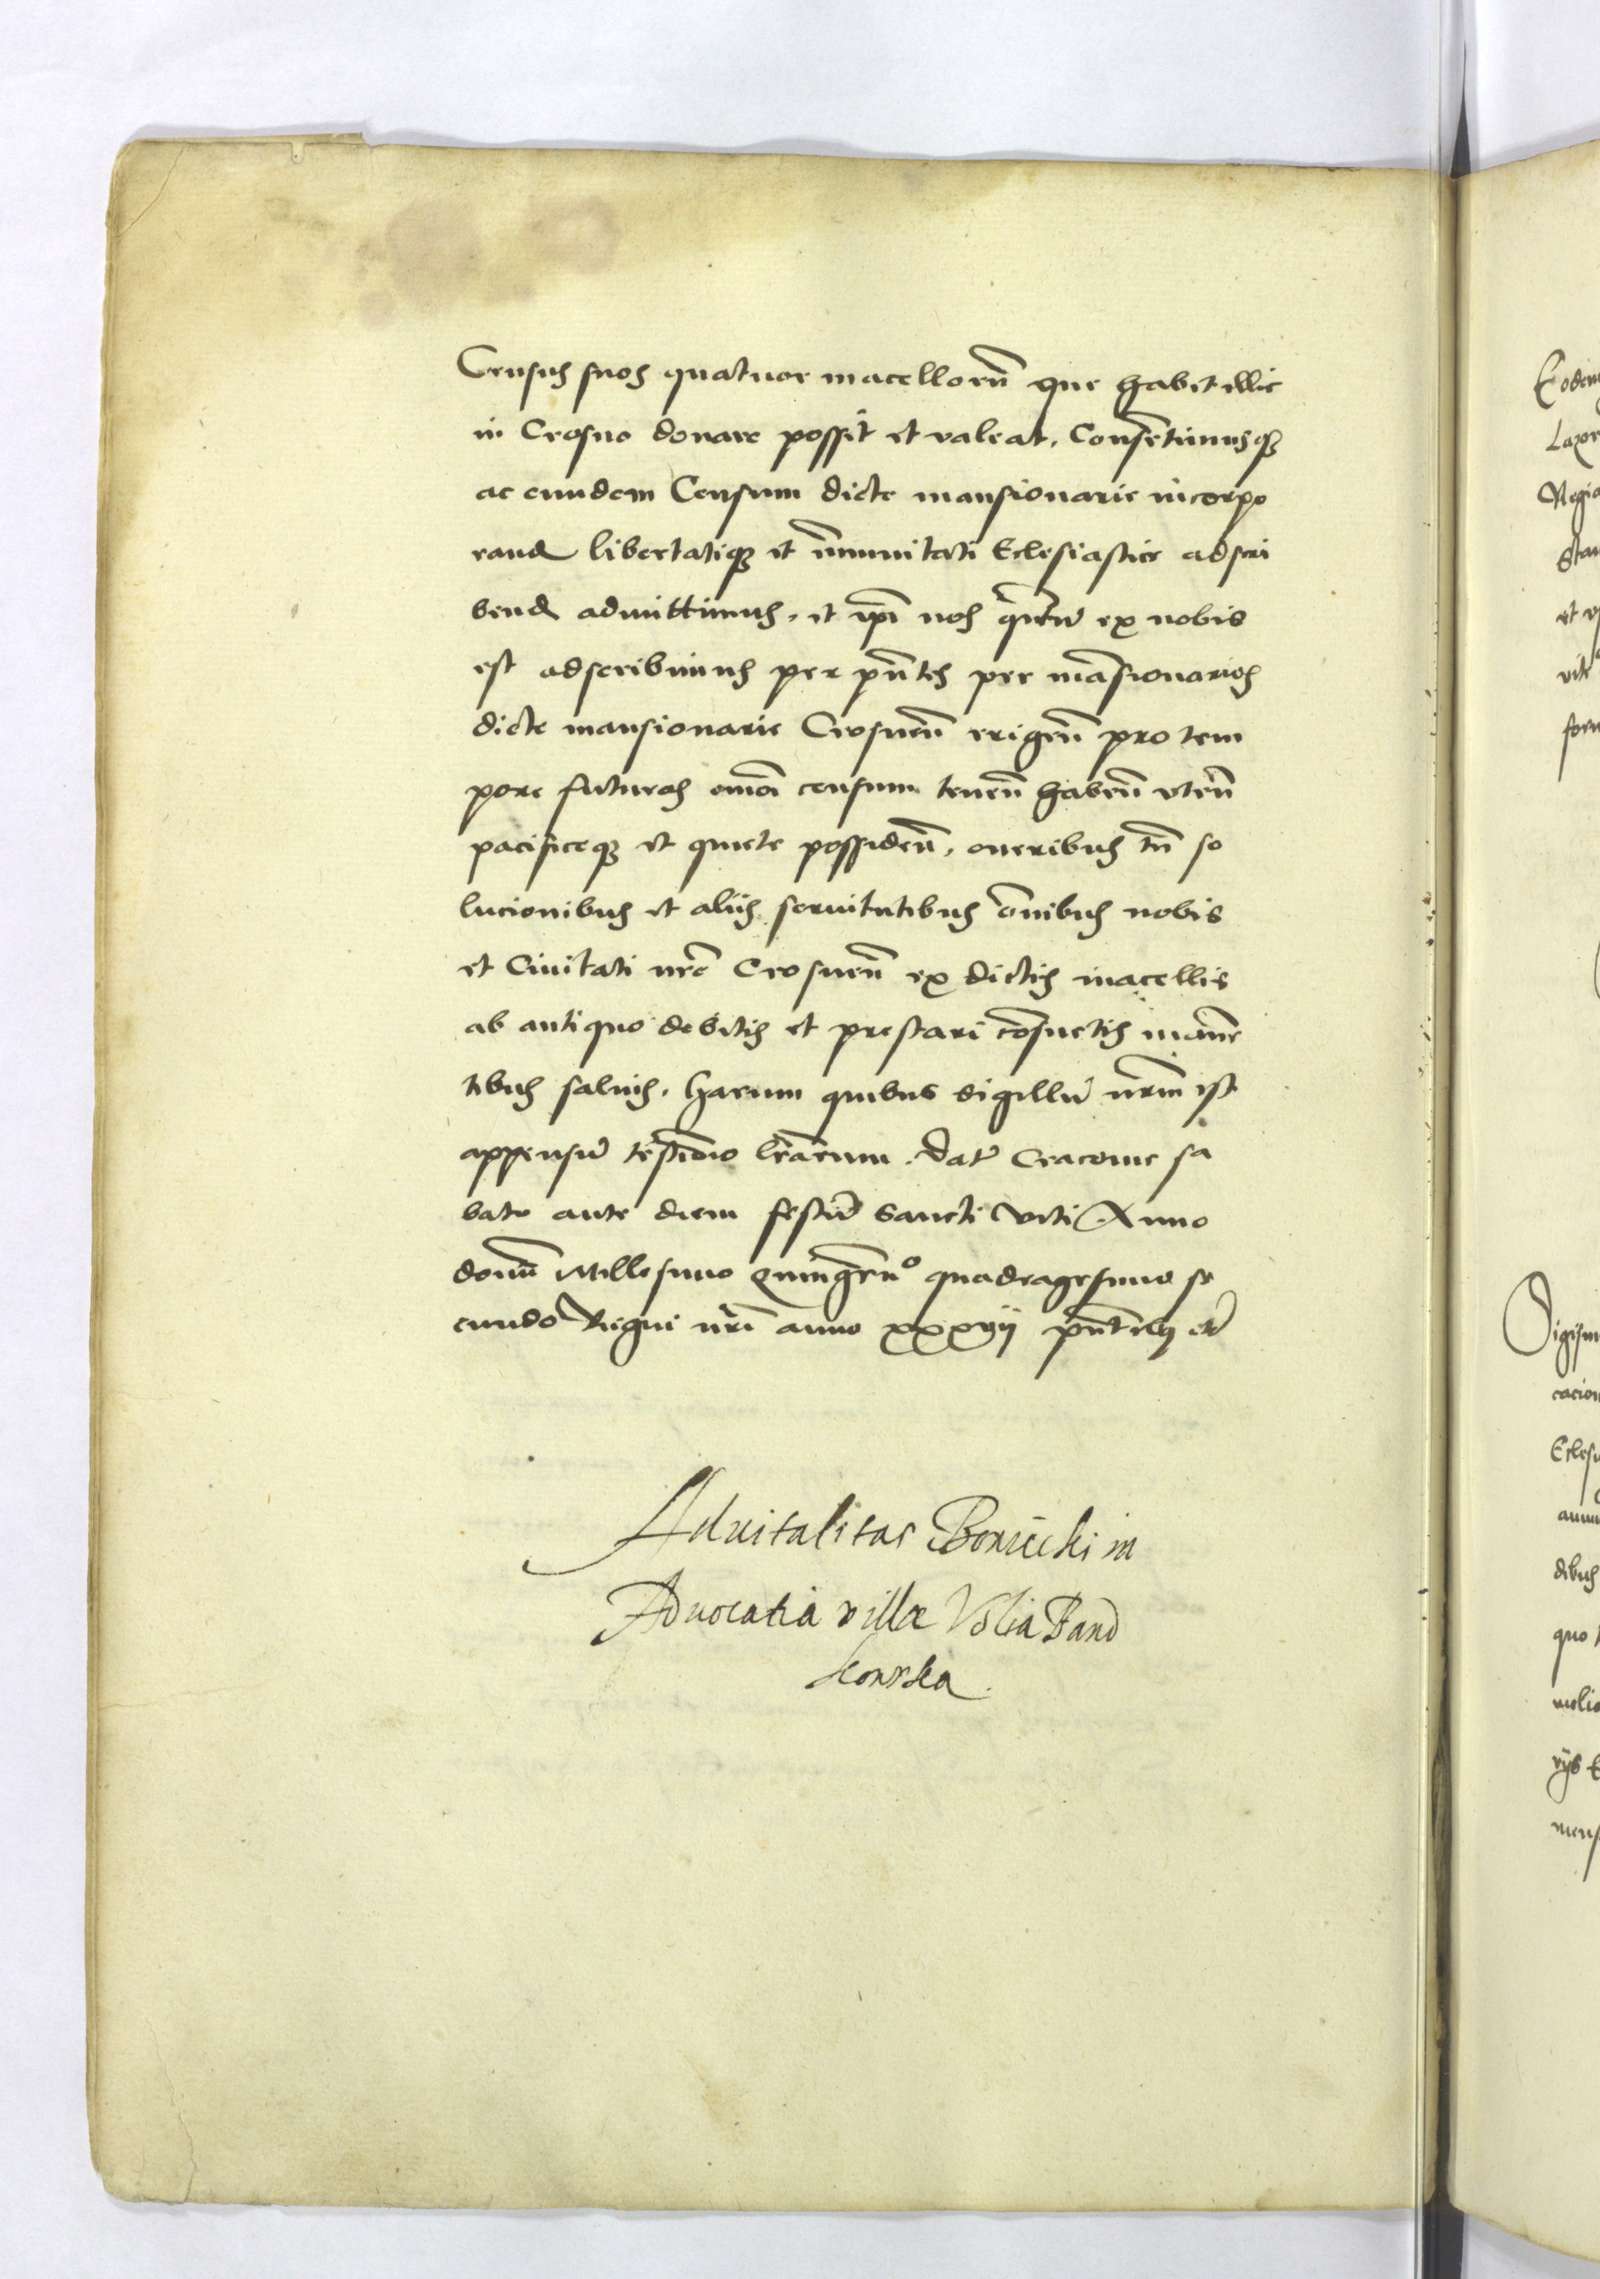 Census suos quatuor macellorū que habet illic
in Crosno donare possit et valeat. Consētimusqz
ac eundem Censum dicte mansionarie incorpo
rand libertatiqz et īmunitati Eclesiastice adscri
bend admittimus. et ipī nos qūtū ex nobis
est adscribimus per pn̄tes per māsionarios
dicte mansionarie Crosnen̄ erigen̄ pro tem
pore futuros censum tenen̄ haben̄ vten̄
pacificeqz et quiete possiden̄, oneribus tn̄ so
lucionibus et alijs seruitutibus ōnibus nobis
et Ciuitati nrē Crosnen̄ ex dictis macellis
ab antiquo debitis et prestari cōsuetis manē
tibus saluis. Harum quibus sigillū nrūm est
appensū testīoīo lrārum. Dat Cracouie sa
bato ante diem festū Sancti Viti Anno
domī Millesimo quingēn° quadragesimo se
cundo Regni nrī anno xxxvij pn̄tibus etc
Aduitalitas Boniecki in
Aduocatia villæ Volia Band
kowska.
Eodem
Regia
et v
vite
form
Sigism
cacion
Eclesi
annu
dibus
quo
melio
rijs E
mens